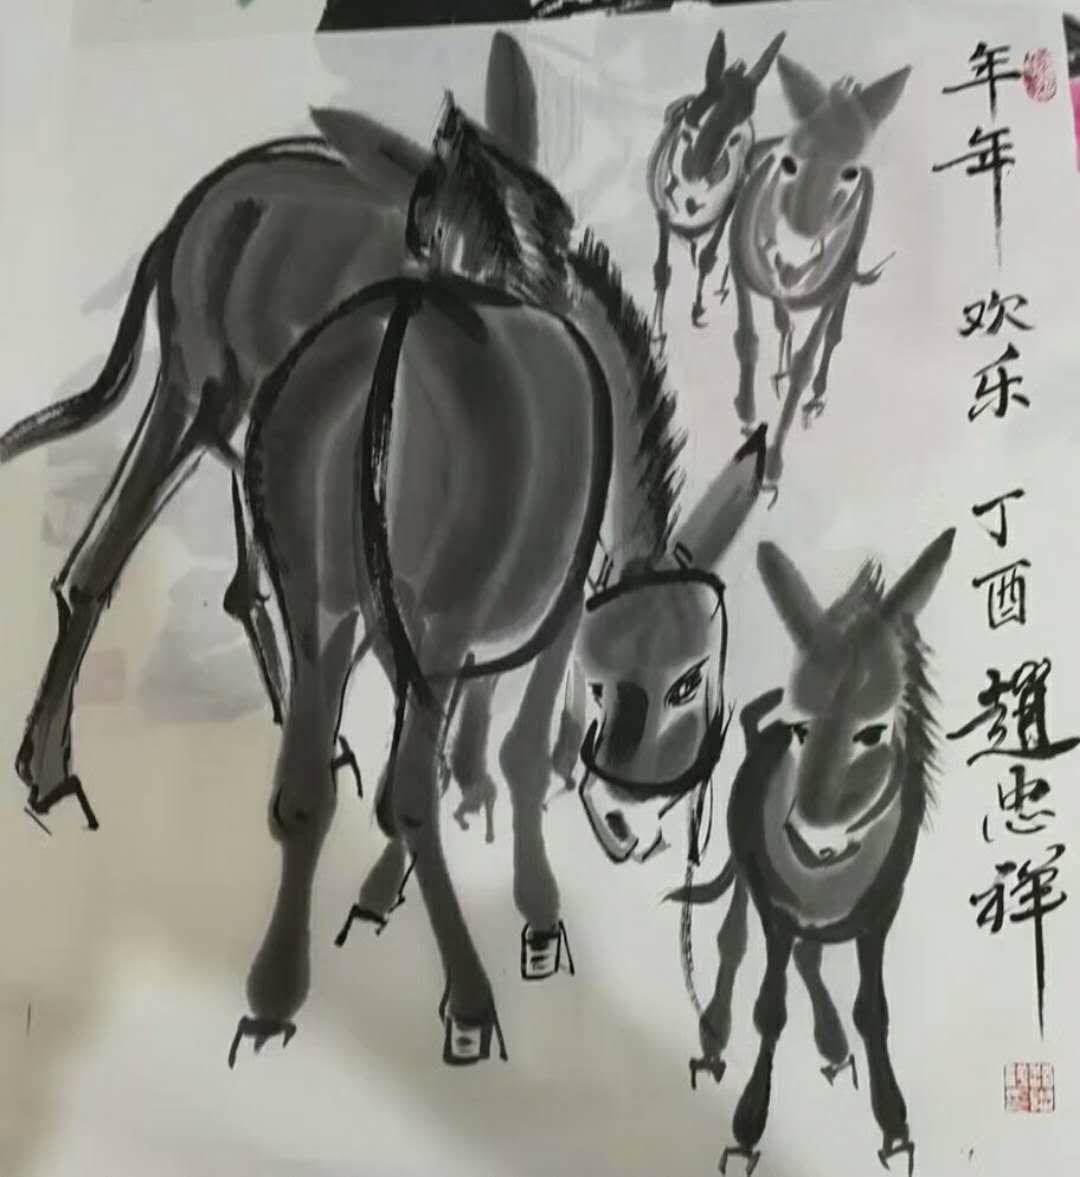 年年欢乐丁酉趙忠祥